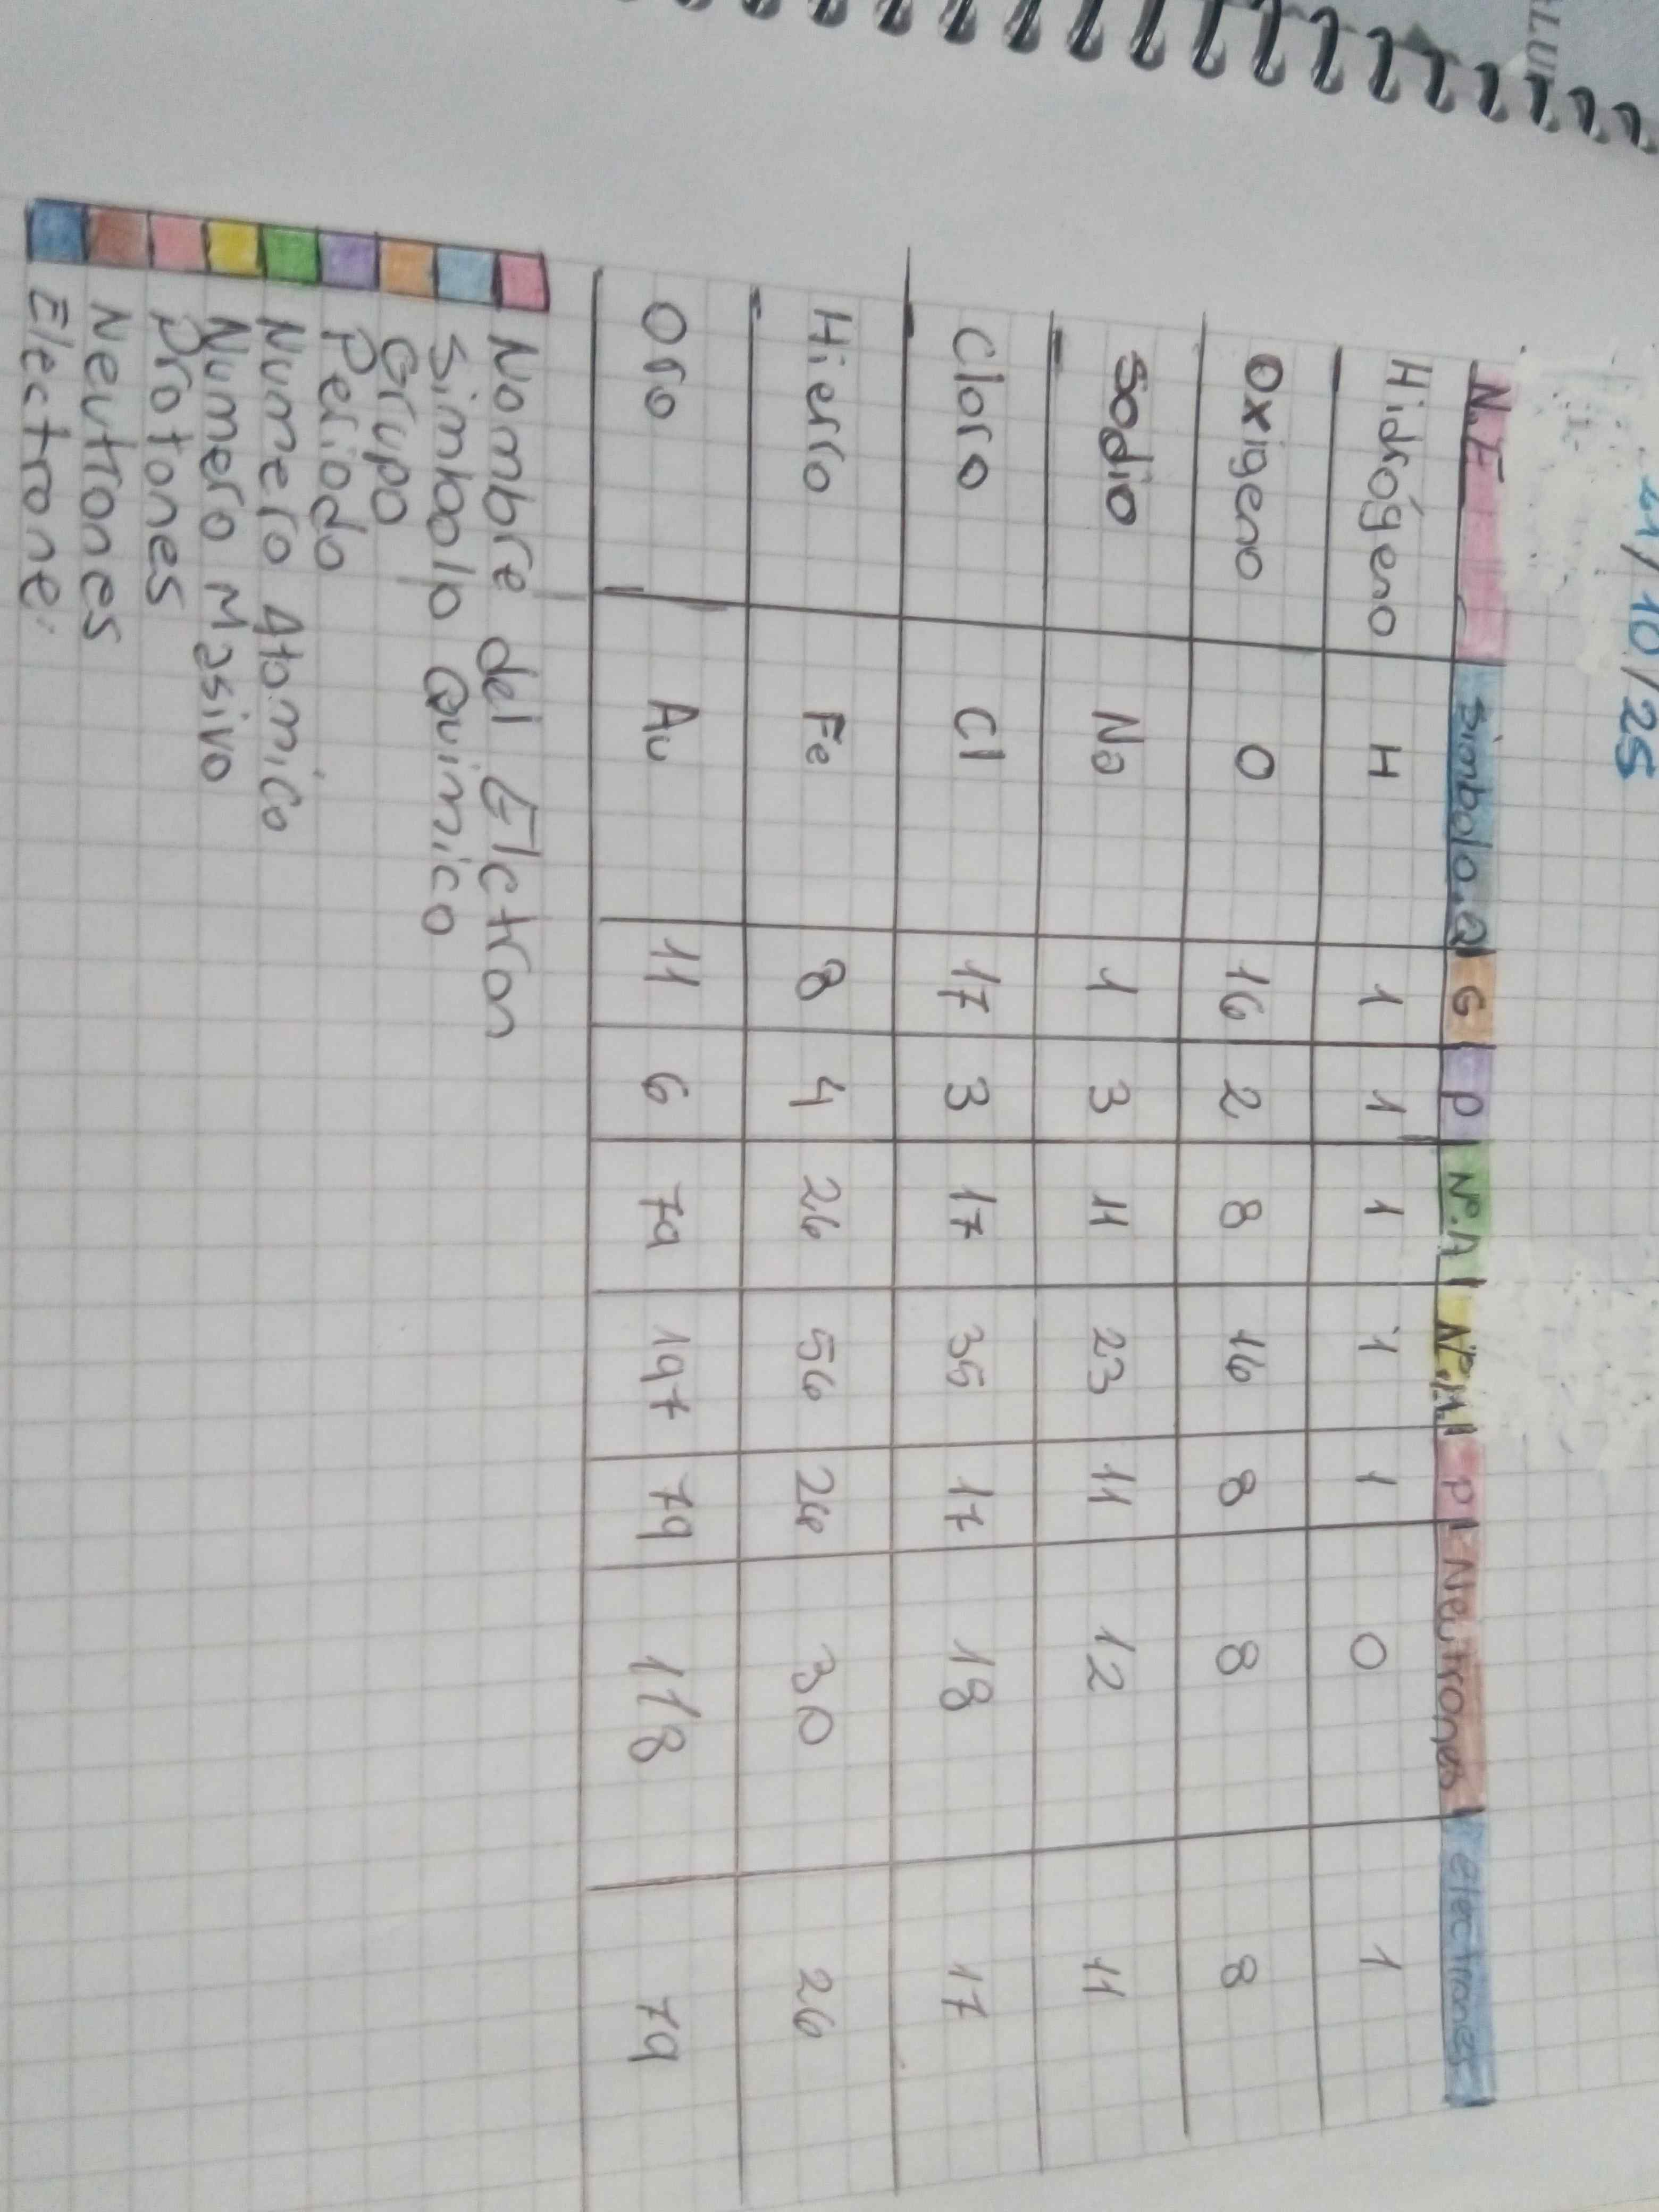 21/10/25
N.E Simbolo.Q G P Nº.A Nº.M. P Neutrones electrones
Hidrógeno H 1 1 1 1 1 0 1
Oxigeno O 16 2 8 16 8 8 8
Sodio Na 1 3 11 23 11 12 11
Cloro Cl 17 3 17 35 17 18 17
Hierro Fe 8 4 26 56 26 30 26
Oro Au 11 6 79 197 79 118 79
Nombre del Elctron
Simbolo Quimico
Grupo
Periodo
Numero Atomico
Numero Masivo
Protones
Neutrones
Electrone